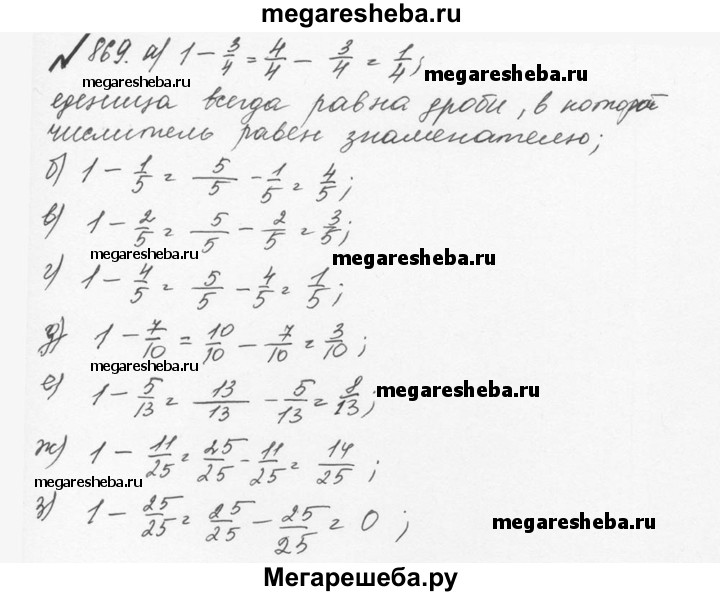 megaresheba.ru
№ 869. а) 1 - 3/4 = 4/4 - 3/4 = 1/4;
megaresheba.ru
megaresheba.ru
еденица всегда равна дроби, в которой
числитель равен знаменателю;
б) 1 - 1/5 = 5/5 - 1/5 = 4/5;
в) 1 - 2/5 = 5/5 - 2/5 = 3/5;
megaresheba.ru
megaresheba.ru
г) 1 - 4/5 = 5/5 - 4/5 = 1/5;
д) 1 - 7/10 = 10/10 - 7/10 = 3/10;
megaresheba.ru
е) 1 - 5/13 = 13/13 - 5/13 = 8/13;
megaresheba.ru
ж) 1 - 11/25 = 25/25 - 11/25 = 14/25;
megaresheba.ru
з) 1 - 25/25 = 25/25 - 25/25 = 0;
megaresheba.ru
Мегарешеба.ру